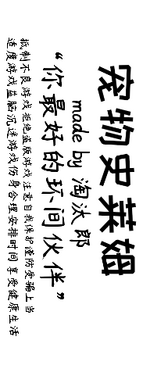 宠物史莱姆
made by 淘汰郎
“你最好的坏间伙伴”
抵制不良游戏拒绝盗版游戏注意自我保护谨防受骗上当
适度游戏益脑沉迷游戏伤身合理安排时间享受健康生活